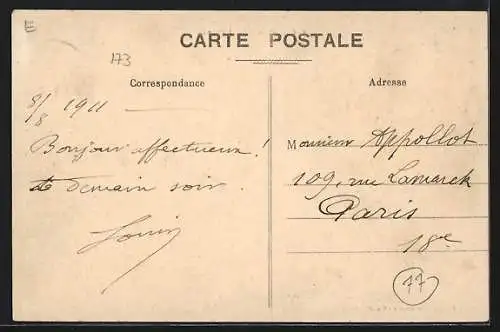 E
173
CARTE POSTALE
Correspondance
Adresse
8/8 1911
Bonjour affectueux !
Demain soir.
Louis
Monsieur Appollot
109, rue Lamarck
Paris
18e
77